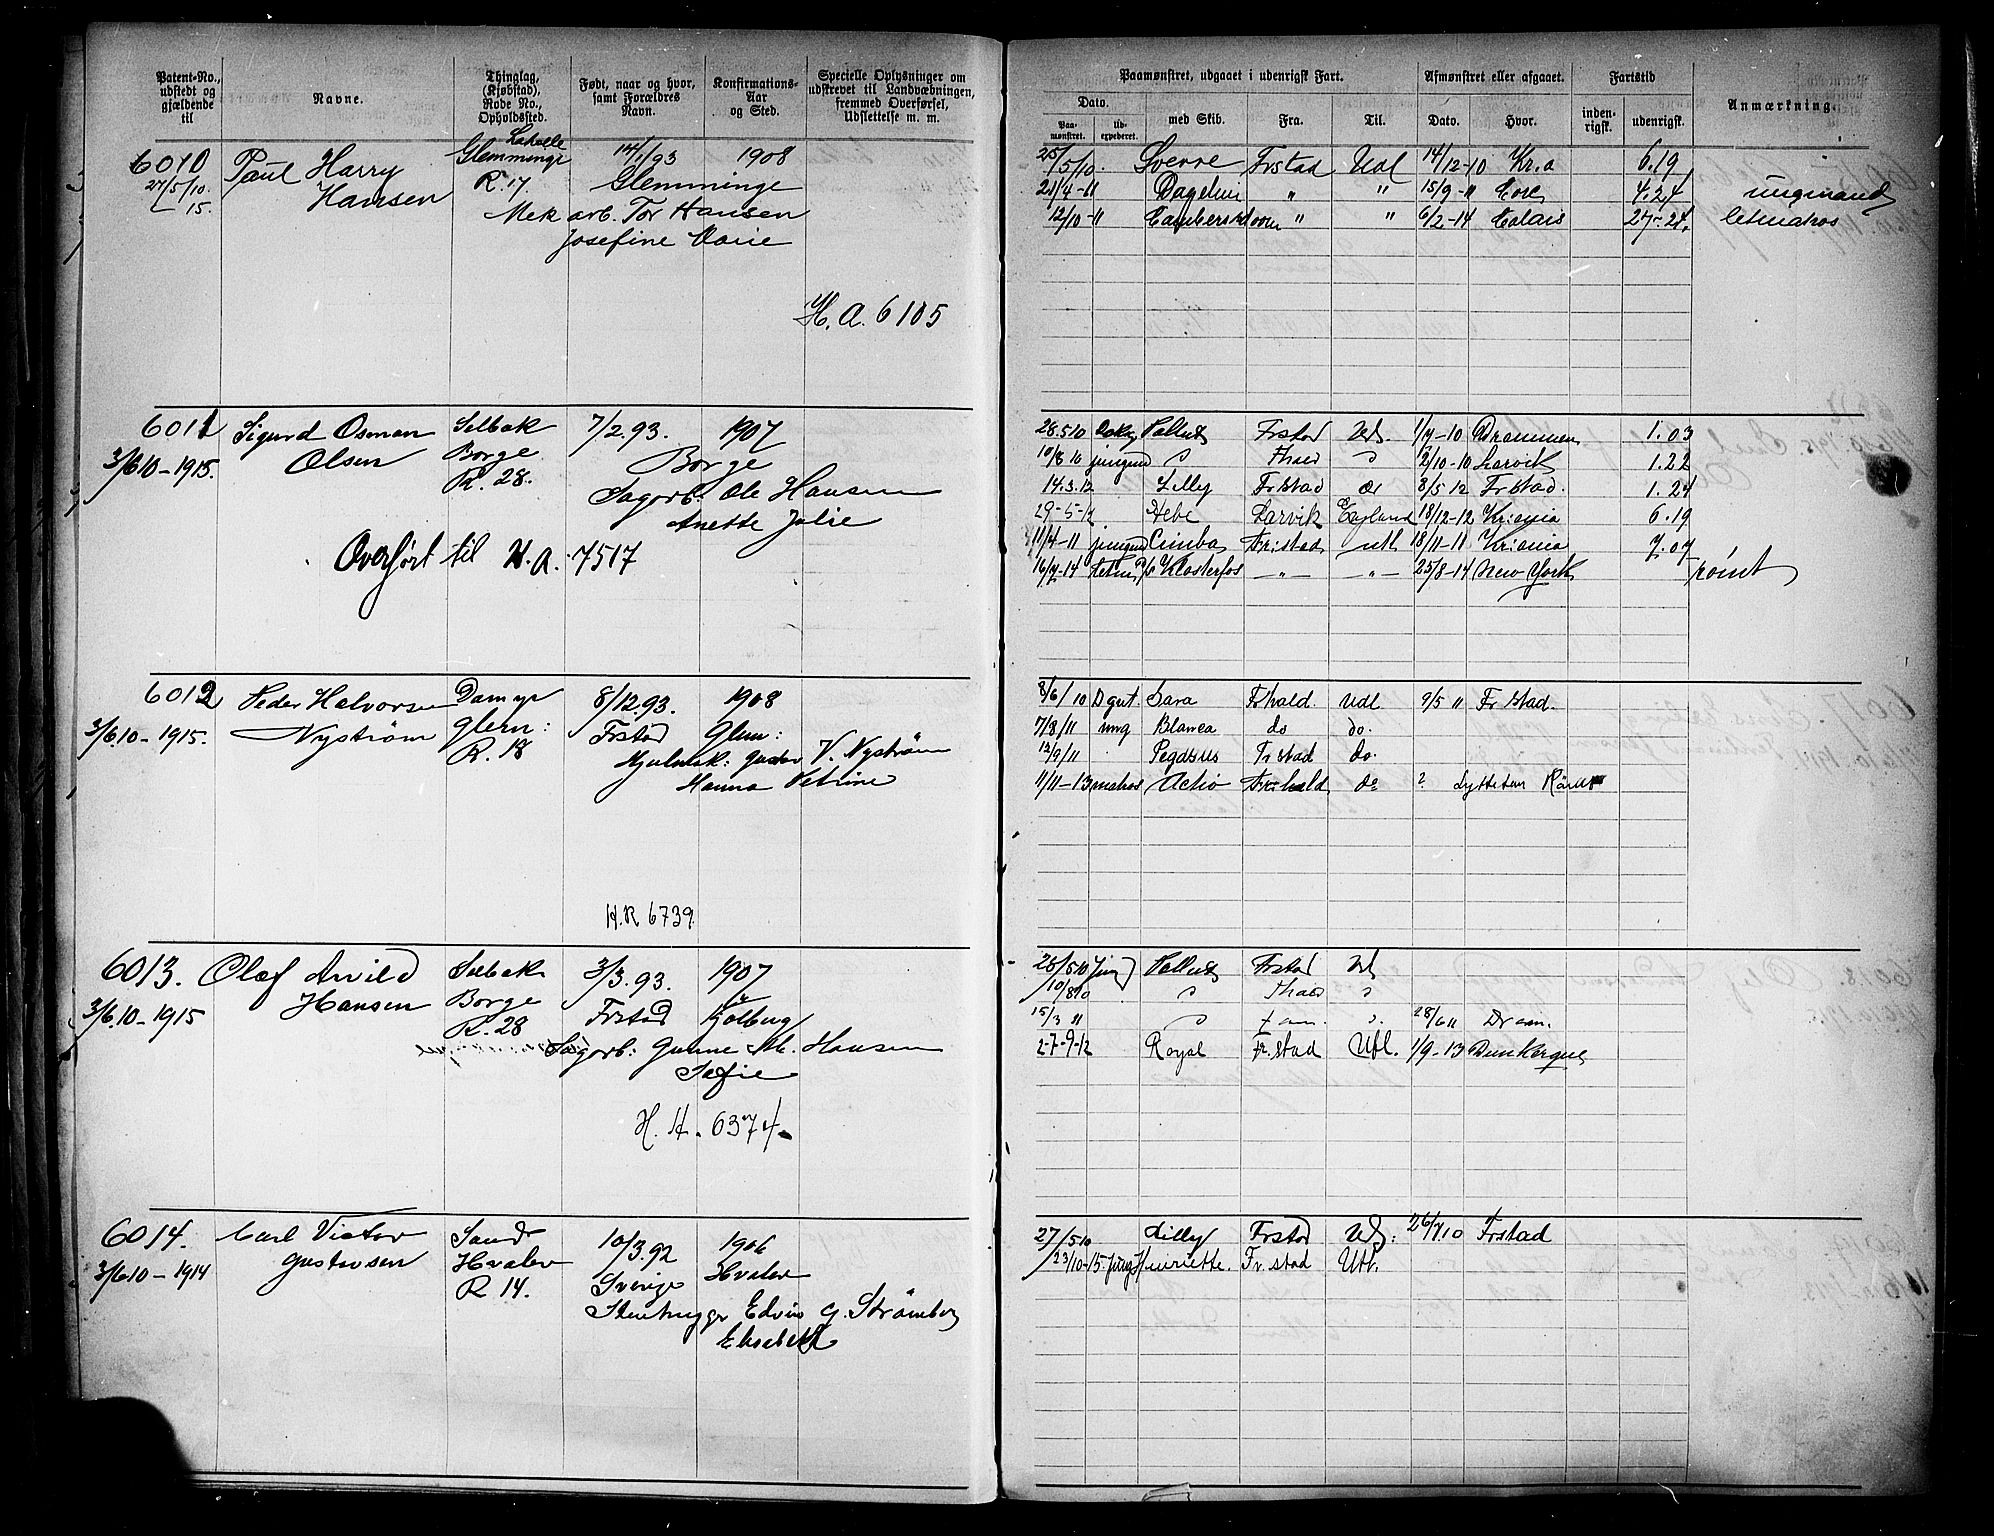 Patent-No., udstedt og gjældende til
Navne.
Thinglag, (Kjøbstad), Rode No., Opholdssted.
Født, naar og hvor, samt Forældres Navn.
Konfirmations-Aar og Sted.
Specielle Oplysninger om udskrevet til Landvæbningen, fremmed Overførsel, Udslettelse m. m.
Paamønstret, udgaaet i udenrigsk Fart.
Dato.
Paa-mønstret.
Ud-expederet.
med Skib.
Fra.
Til.
Afmønstret eller afgaaet.
Dato.
Hvor.
Fartstid
inden-rigsk.
udenrigsk.
Anmærkning.
6010 Paul Harry Hansen
27/5/10. 15.
Glemminge R. 17.
14/1/93 1908
Glemminge
Mek arb. Tor Hansen
Josefine Marie
H. A. 6105
25/5/10. Sverre Frstad Udl 14/12-10 Kr.a 6.19
21/4-11 " " 15/9-11 4.24 ungmand
12/10-11 " " 6/2-14 Calais 27-24. letmatros
6011 Sigurd Osman Olsen
3/6.10-1915.
Selbak Borge R. 28.
7/2.93. 1907
Borge
Sagarb: Ole Hansen
Anette Julie
Overført til H. A. 7517
28.5.10 Frstad Udl. 1/7-10 Drammen 1.03
10/8 10 jungmd 2/10-10 Larvik 1.22
14.3.12 Lilly Frstad 8/5 12 Frstad. 1.24
29-5-12 Hebe Larvik England 18/12-12 Kr.ania 6.19
11/4-11 jungmd Cimba Frkstad utl 18/11-11 Kr.ania 7.07
16/7-14 Klosterfos —„— —„— 25/8-14 New York rømt
6012 Peder Halvorsen Nystrøm
3/6.10-1915.
Damyr Glem: R. 18
8/12.93. 1908
Frstad Glem:
Hjulmak: Gustav V. Nystrøm
Hanna Petrine
H.R 6739.
8/6/10 Dgut. Sara Frhald. Udl 9/5 11 Frstad.
7/8/11 ung Blanca do do.
12/9/11 Pegasus Frstad do.
11/11-13 matros Actio Frkhald do ? Lyttelton
6013. Olaf Arvild Hansen
3/6.10-1915
Selbak Borge R. 28
3/3.93. 1907
Frstad
Sagarb: Gunne M. Hansen
Sofie
H. H. 6374.
28/5 10 Jung Frstad Udl
10/8 10
15/3 11 28/6 11 Dram.
2-7-9-12 Royal Fr.stad Utl. 1/9-13 Dunkerque
6014. Carl Victor Gustavsen
3/6.10-1914
Sand Hvaler R 14.
10/3.92 1906
Sverige Hvaler
Stenhugger Edvin G. Strömberg
Elisabeth
27/5 10 Lilly Frstad Udl. 26/7 10 Frstad
23/10-15 Jung Henriette. Fr.stad Utl.